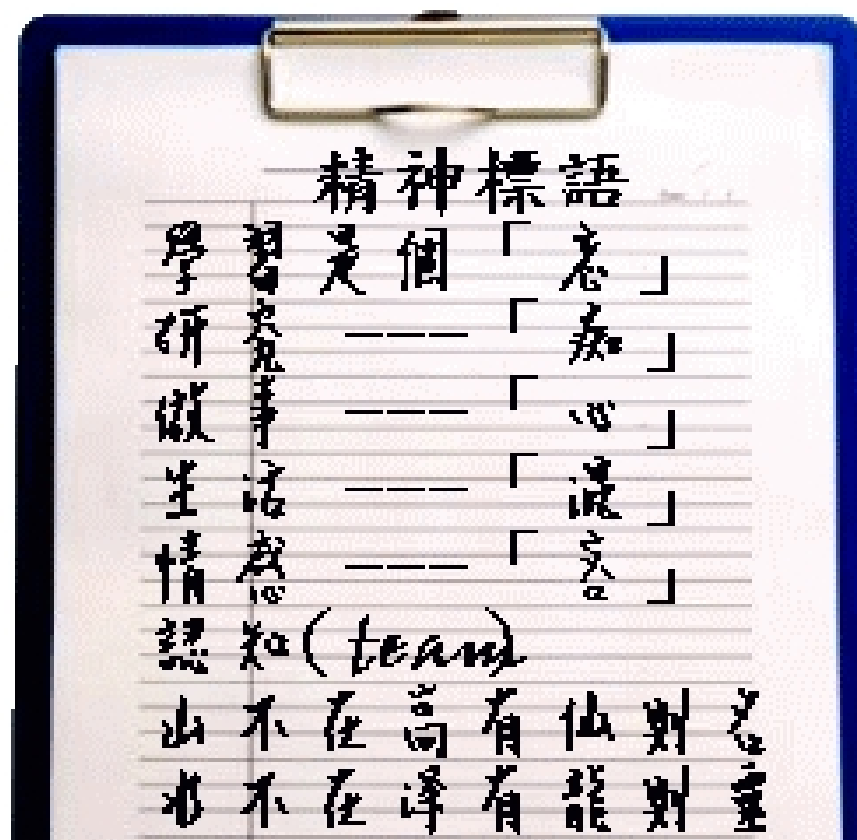 精神標語
學習是個「」
研究———「痴」
做事———「心」
生活———「」
情感———「」
認知(team)
山不在高有仙則名
水不在澤有龍則靈